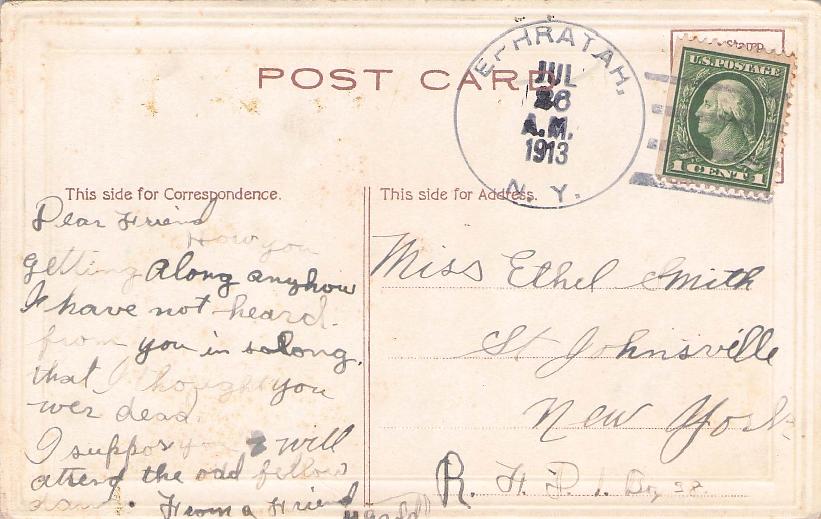 POST CARD
EPHRATAH,
JUL
26
A.M.
1913
N. Y.
U.S. POSTAGE
1 CENT 1
This side for Correspondence.
Dear Friend
How you
getting along anyhow
I have not heard
from you in so long.
that I thought you
wer dead.
I suppos you will
attend the odd fellow
From a Friend
This side for Address.
Miss Ethel Smith
St Johnsville
New York
R. F. D. 1.